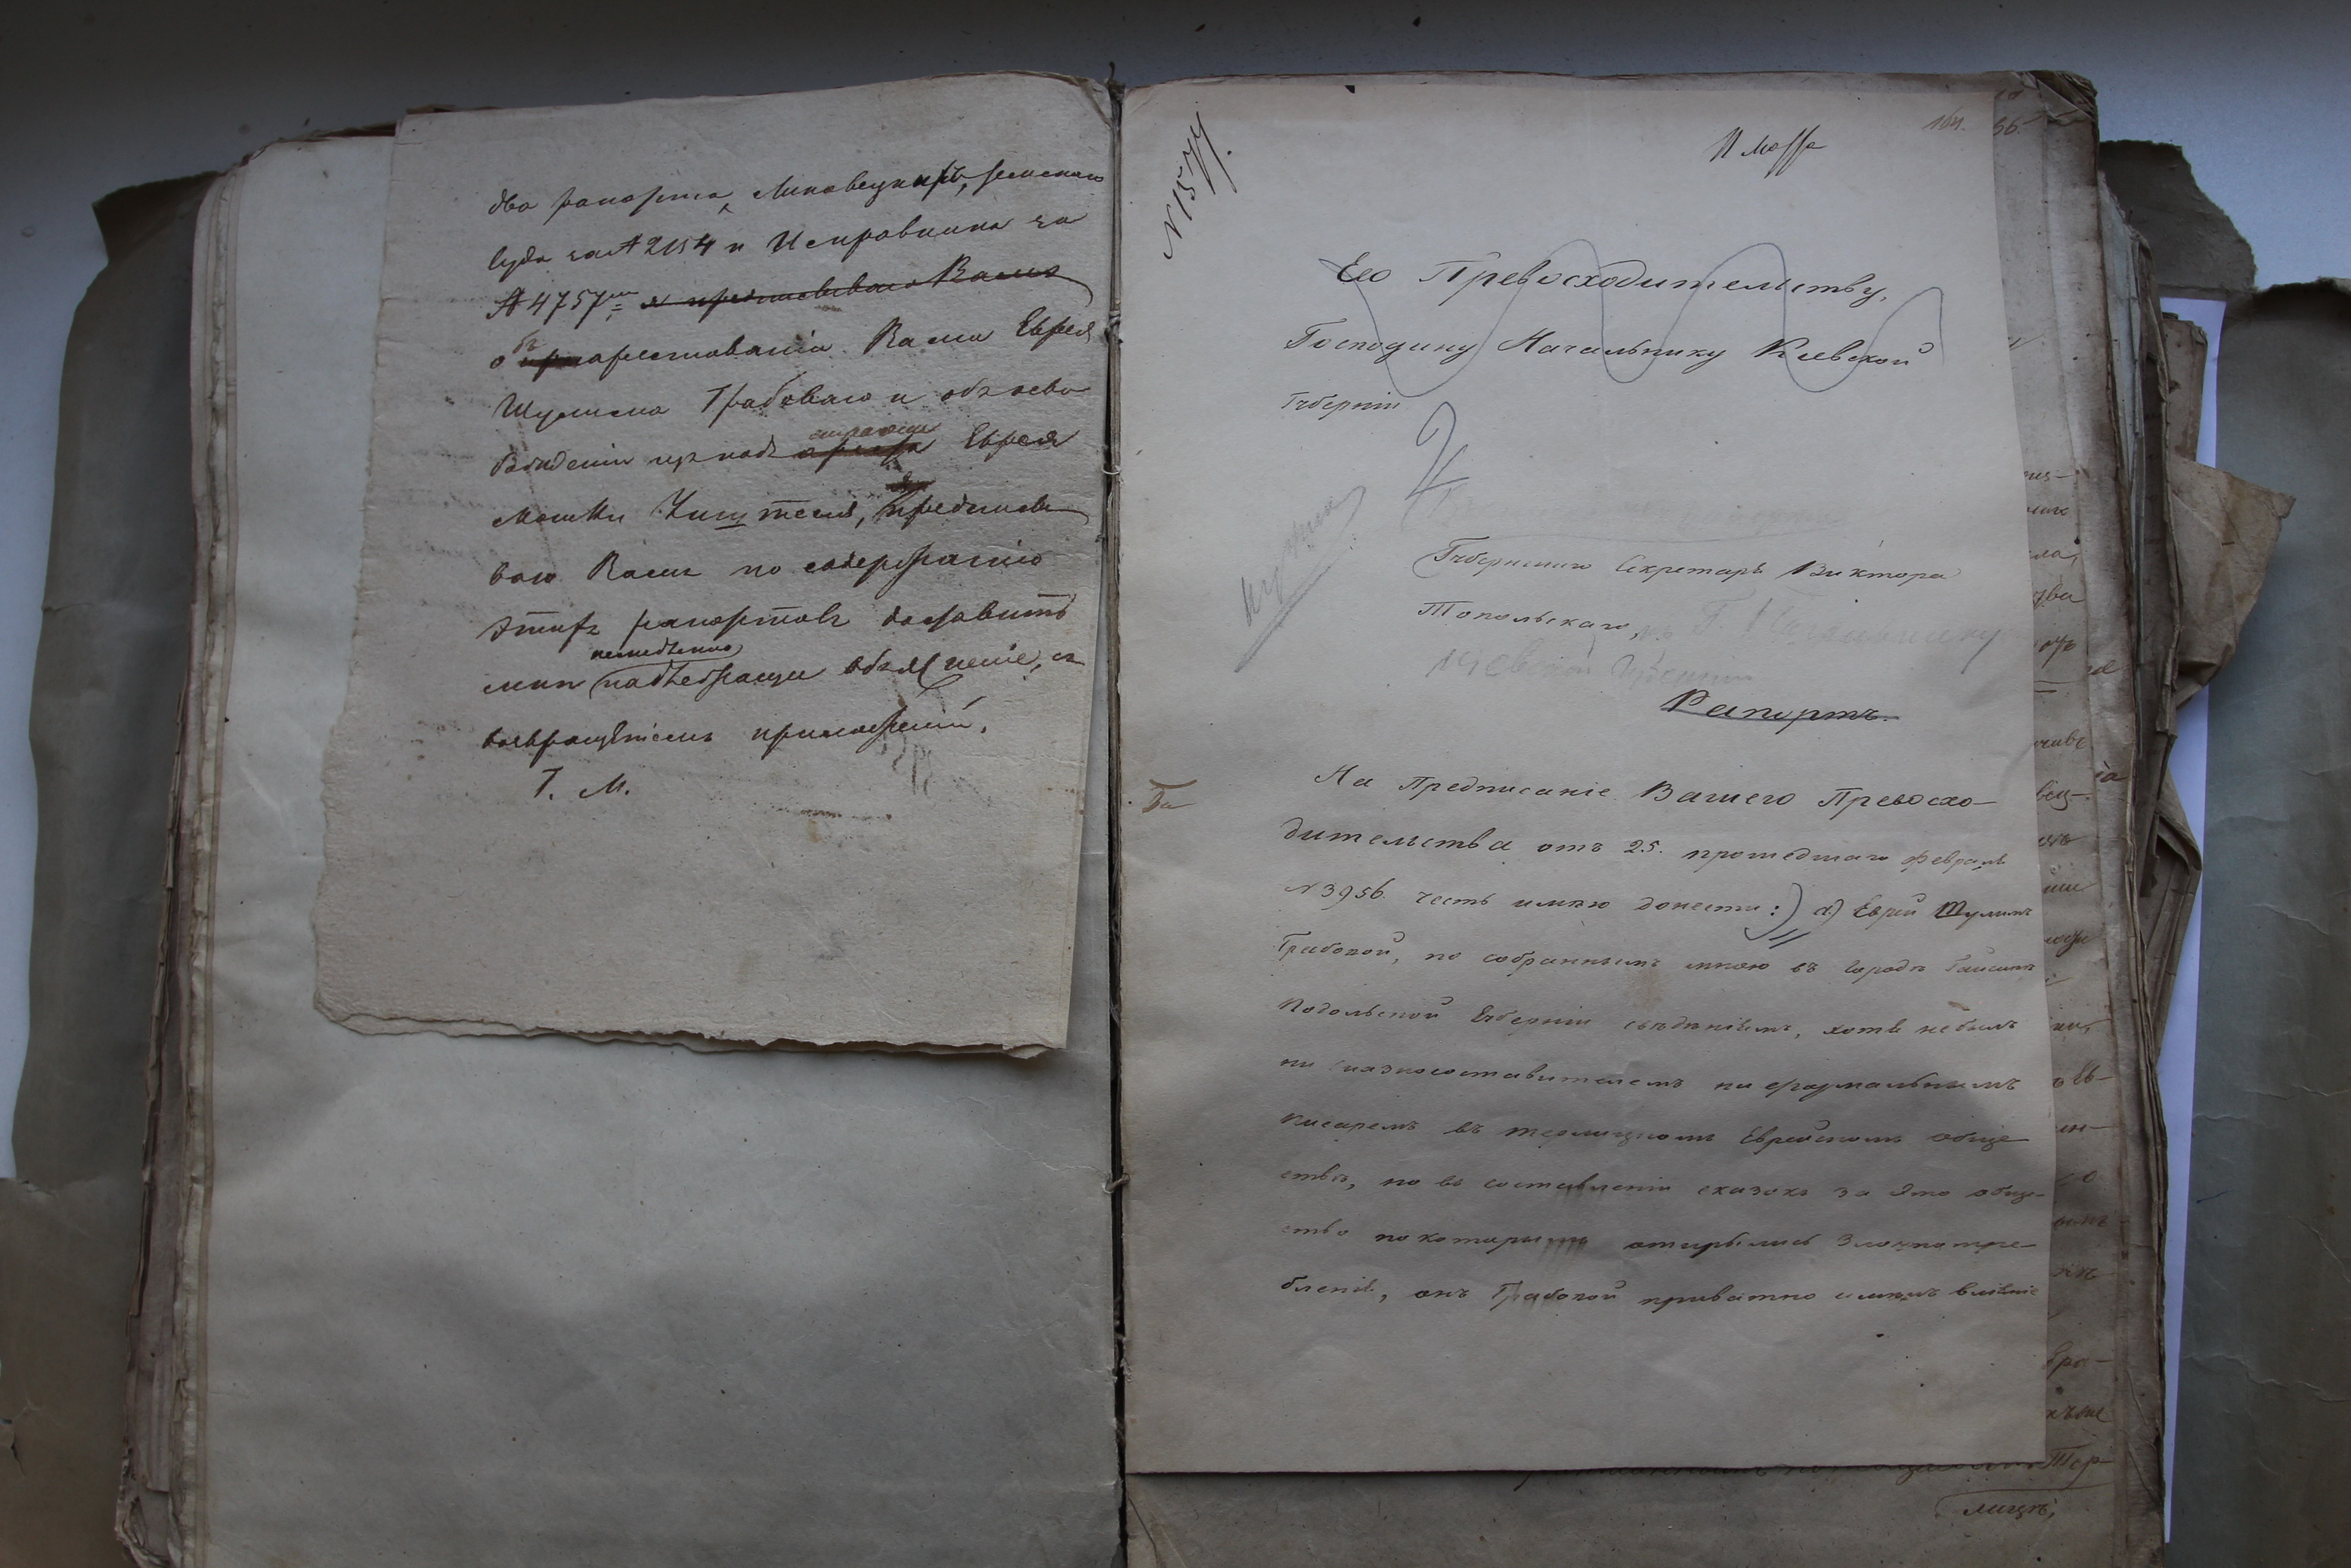 два рапорта, Липовецкихъ, земскаго
суда за № 2154 и Исправника за
№ 4757 я предписываю Вамъ
объ арестованіи Вами Еврея
Шулима Грабоваго и объ осво
божденіи изъ подъ ареста стражи Еврея
Мошки, предписы
ваю Вамъ по содержанію
этихъ рапортовъ доставить
мнѣ немедленно надлежащее объясненіе, съ
возвращеніемъ приложеній.
Г. М.
№ 1577.
11 Мар
164.
Его Превосходительству,
Господину Начальнику Кіевской
Губерніи
Губернскаго Секретаря Виктора
Топольскаго,
Кіевской Губерніи
Рапортъ.
На Предписаніе Вашего Превосхо-
дительства отъ 25. прошедшаго Февраля
№ 3956. честь имѣю донести: а) Еврей Шулимъ
Грабовой, по собраннымъ мною въ городѣ Гайсинѣ
Подольской Губерніи свѣдѣніямъ, хотя небылъ
ни сказкосоставителемъ ни формальнымъ
писаремъ въ терлицкомъ Еврейскомъ обще
ствѣ, но въ составленіи сказокъ за это обще-
ство по которымъ открылись злоупотре-
бленія, онъ Грабовой приватно имѣлъ вліяніе
лицѣ,